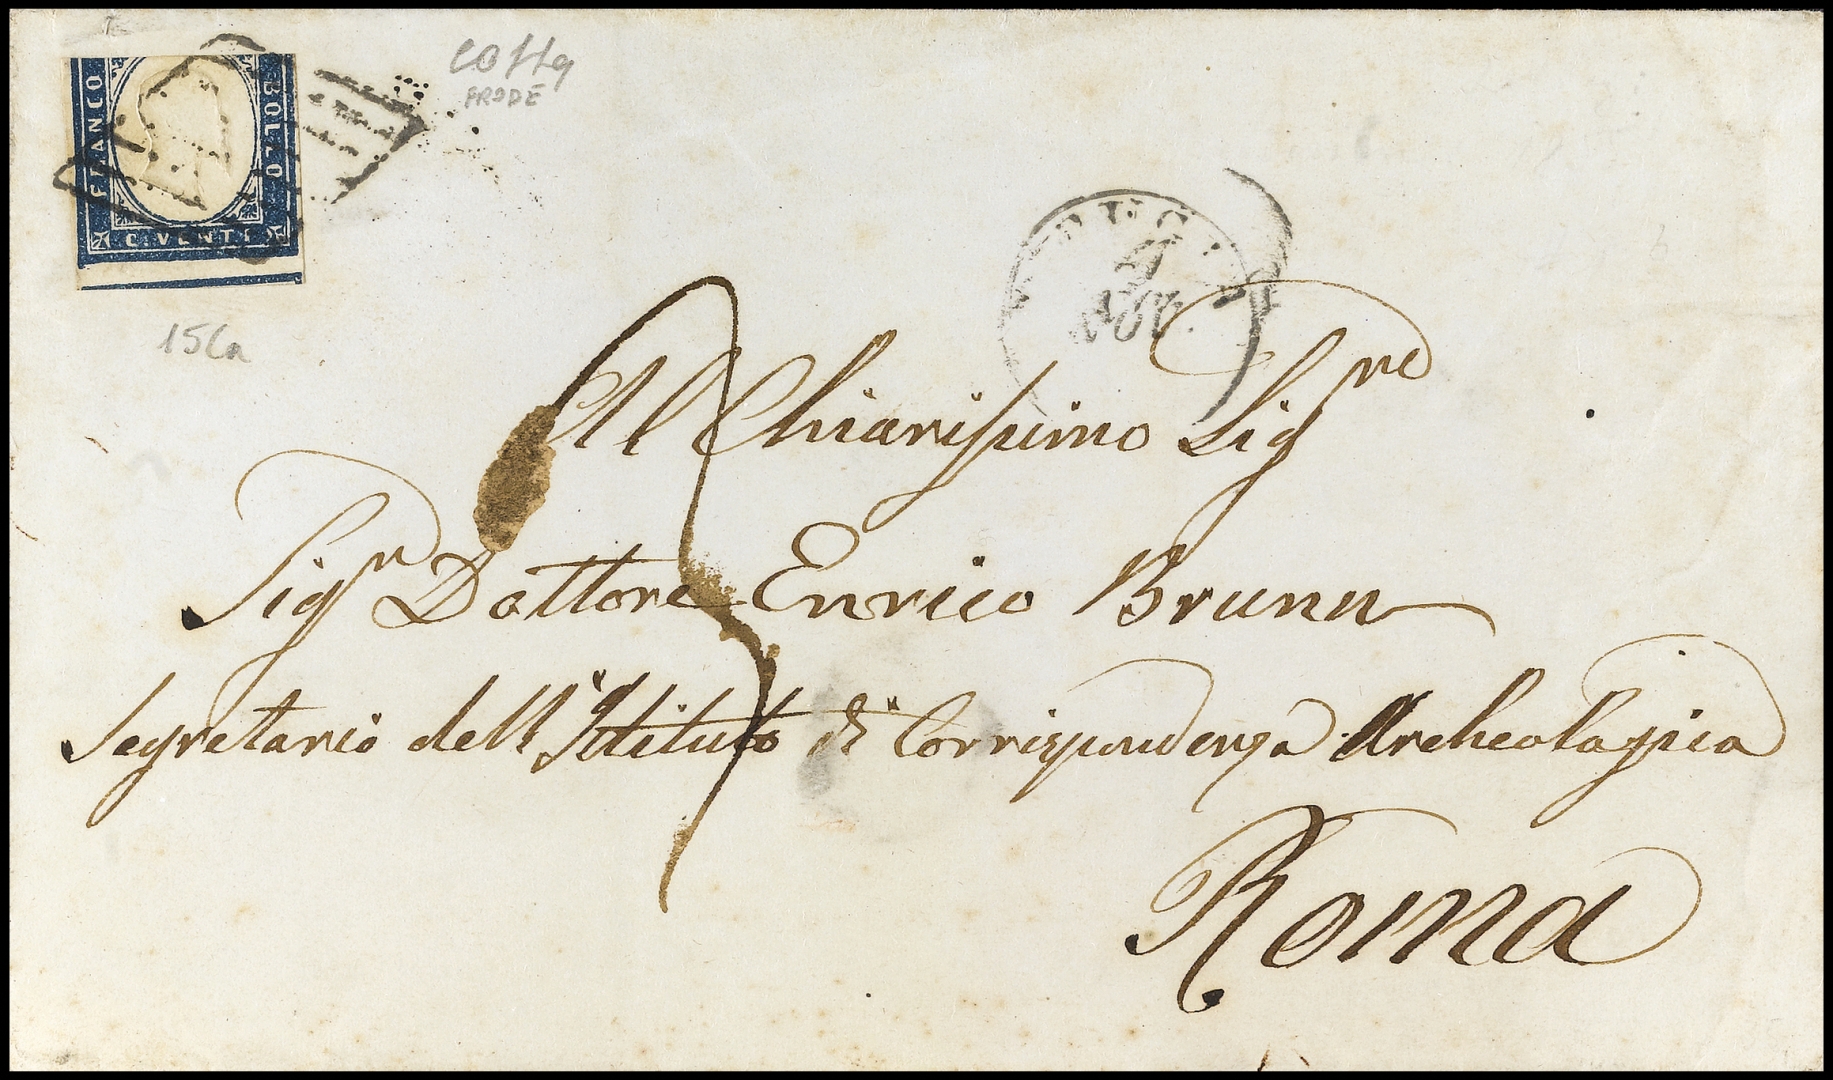 FRANCO
BOLLO
C. VENTI
FRODE
15Ca
Al Chiarissimo Sigre
Sigr Dottore Enrico Brunn
Segretario dell'Istituto di Corrispondenza Archeologica
Roma